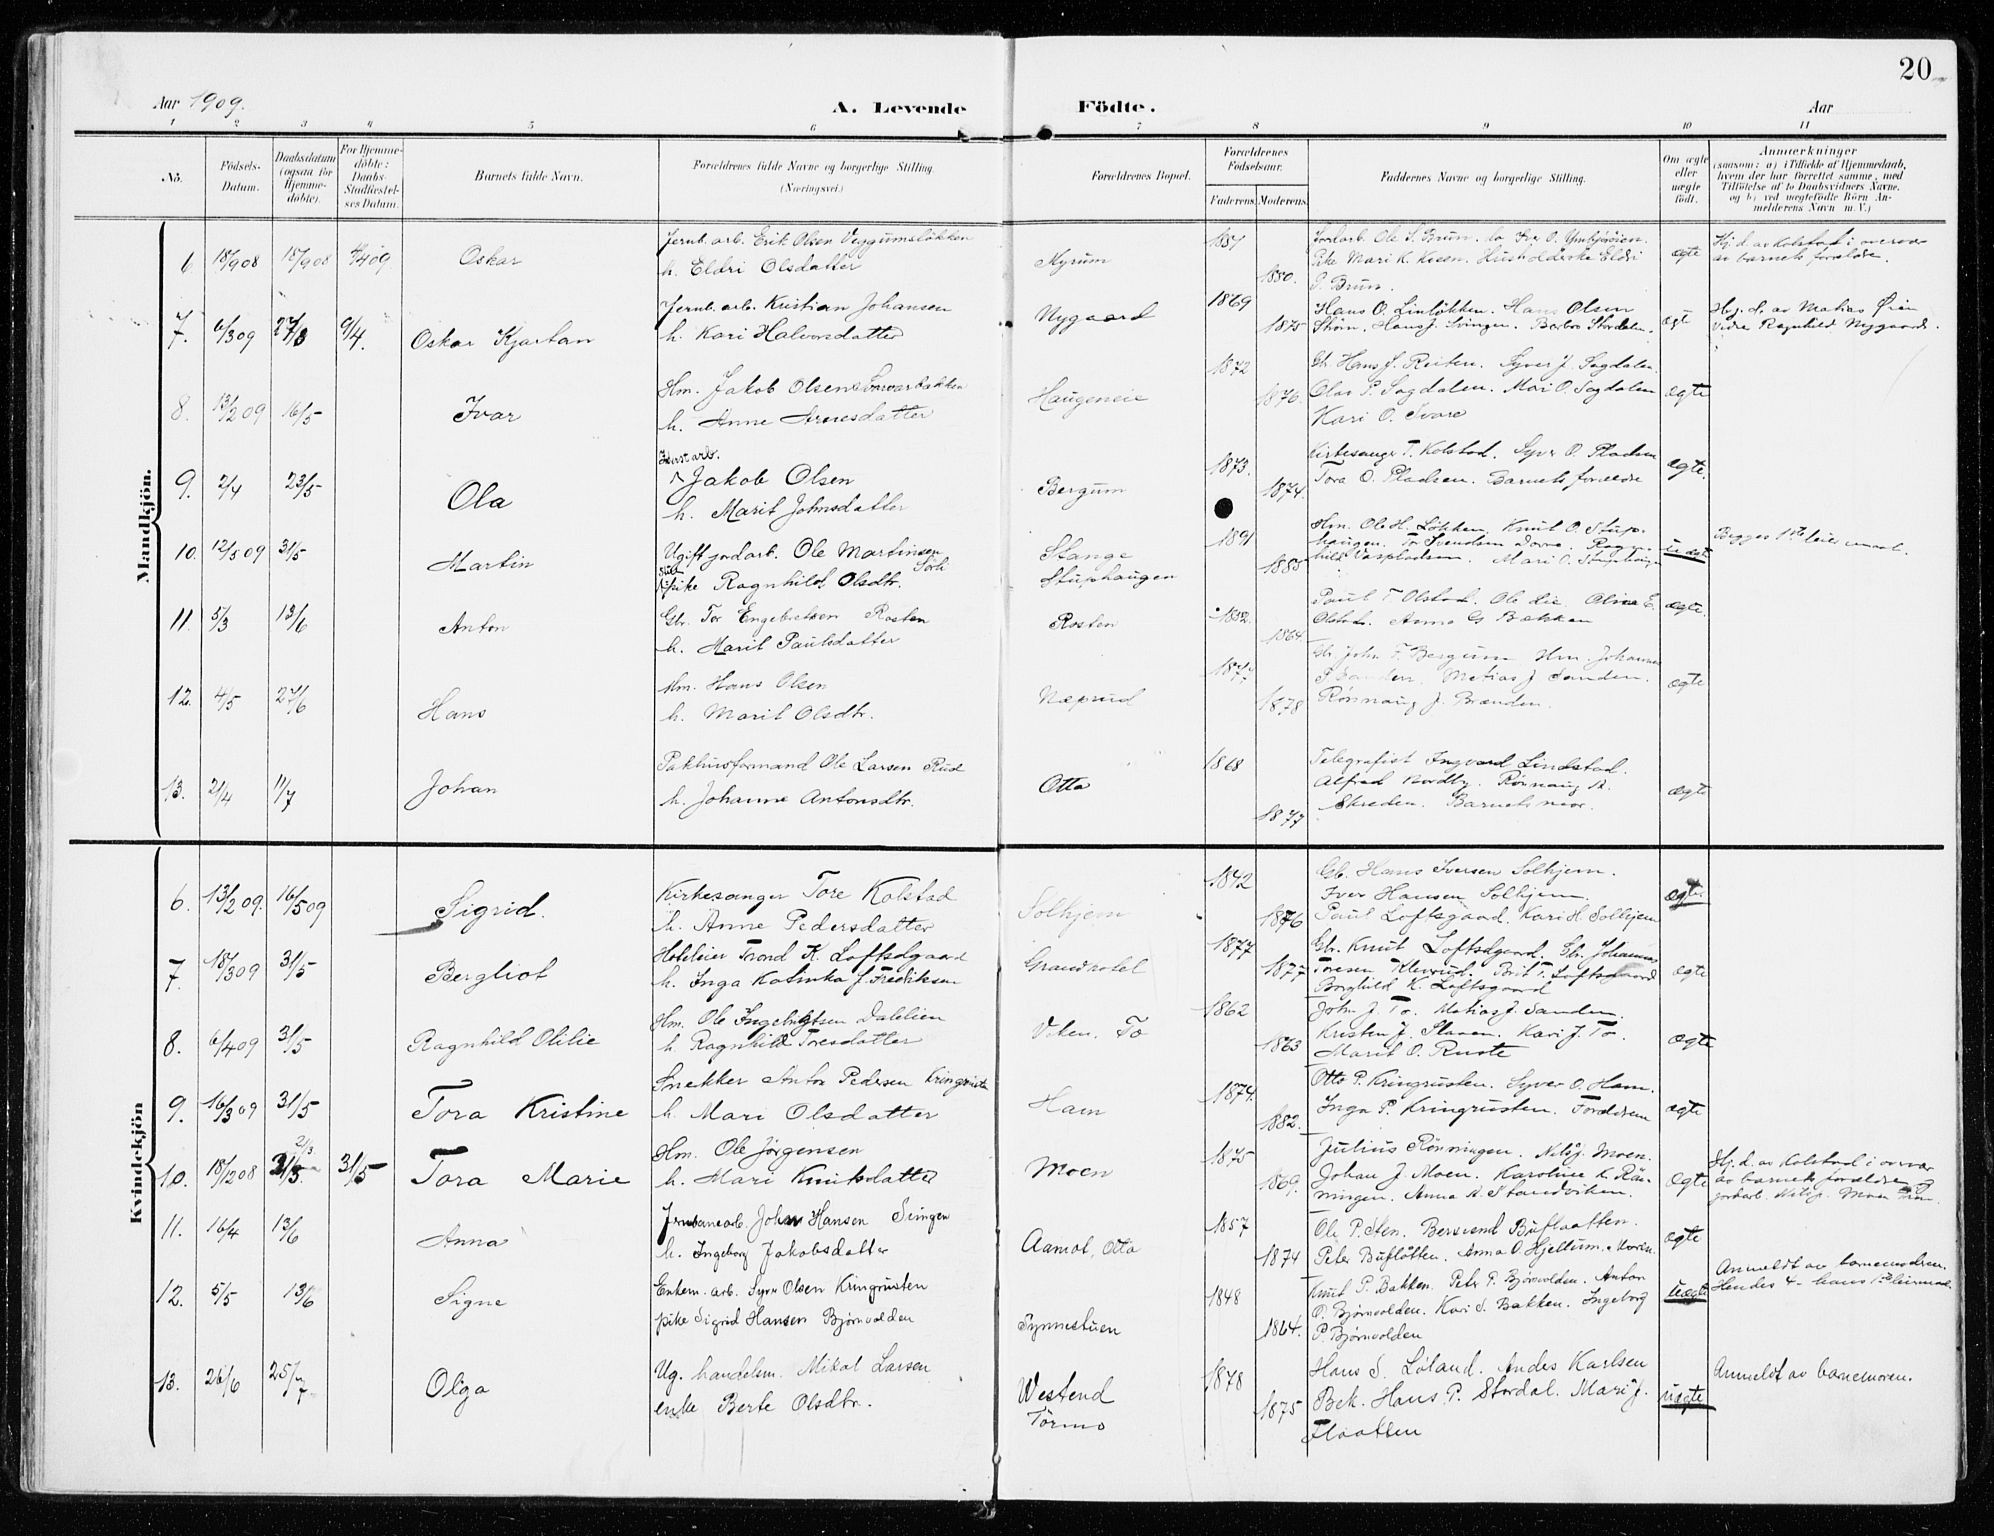 20
Aar 1909.
A. Levende Födte.
Aar
1 2 3 4 5 6 7 8 9 10 11
No.
Födsels-Datum.
Daabsdatum (ogsaa for Hjemmedöbte).
For Hjemmedöbte: Daabs-Stadfæstelses Datum.
Barnets fulde Navn.
Forældrenes fulde Navne og borgerlige Stilling. (Næringsvei.)
Forældrenes Bopæl.
Forældrenes Födselsaar.
Faderens. Moderens.
Faddernes Navne og borgerlige Stilling.
Om ægte eller uægte födt.
Anmærkninger
(saasom: a) i Tilfælde af Hjemmedaab,
hvem der har forrettet samme, med
Tilföielse af to Daabsvidners Navne,
og b) ved uægtefödte Börn An-
melderens Navn m. V.)
Mandkjön.
6. 18/908 18/908 4/409 Oskar
Jernb. arb. Erik Olsen Veggumsløkken
h. Eldri Olsdatter
Myrum
1880.
Pike Mari K. Husholderske Eldri
Brun.
ægte
Hj. d. av Kolstad i overvær
av barnets forældre.
7. 6/309 27/3 9/4. Oskar Kjartan
Jernb. arb. Kristian Johansen
h. Kari Halvorsdatter
Nygaard
1869
1875
Hans O. Linløkken. Hans Olsen
Hans J. Svingen. Barbro Stordalen.
ægt
Hj. d. av Matias Øien
Ragnhild Nygaard.
8. 13/209 16/5 Ivar
Hm. Jakob Olsen
h. Anne Arnesdatter
Haugeneie
1872
1876.
Gb. Hans J. Reiten. Syver J. Sagdalen.
Olav P. Sagdalen. Mari O. Sagdalen
Kari O.
ægte
9. 2/4 23/5 Ola
Jakob Olsen
h. Marit Johnsdatter
Bergum
1873.
1874.
Kirkesanger T. Kolstad. Syver O. Pladsen
Tora O. Pladsen. Barnets forældre
ægte.
10. 12/509 31/5 Martin
Ugift jordarb. Ole Martinsen
pike Ragnhild Olsdtr.
Stange
Stuphaugen
1891
1885
Hm. Ole H. Løkken. Knut O. Stup-
haugen. Mari O. Stuphaugen
uægt
Begges 1ste leiermaal.
11. 5/3 13/6 Anton
Gbr. Tor Engebretsen Rosten
h. Marit Paulsdatter
Rosten
1864
Paul T. Olstad. Ole Lie. Oline E.
Olstad. Anne G. Bakken
ægte.
12. 4/5 27/6 Hans
Hm. Hans Olsen
h. Marit Olsdtr.
Næprud
1878
Gb. John F. Bergum Hm. Johannes
Sanden. Matias J. Sanden.
Rønnaug J. Brænden.
ægte
13. 2/4 11/7 Johan
Pakhusformand Ole Larsen Rud
h. Johanne Antonsdtr.
Otta
1868
1877
Telegrafist Ingvard Lindstad.
Alfred Nordby. Rønnaug
Skreden. Barnets mor.
ægte
Kvindekjön
6. 13/209. 16/509 Sigrid.
Kirkesanger Tore Kolstad
h. Anne Pedersdatter
Solhjem
1872
1876
Gb. Hans Iversen Solhjem.
Iver Hansen Solhjem.
Paul Loftsgaard. Kari H. Solhjem
ægte.
7. 18/309 31/5 Bergliot
Hoteleier Trond K. Loftsgaard
h. Inga Katinka J. Fredriksen
Grandhotel
1877
1877
Gb. Knut Loftsgaard. Gb. Johannes
Toresen Klevrud. Brit T. Loftsgaard
Borghild K. Loftsgaard
ægte
8. 6/409 31/5 Ragnhild Otilie
Hm. Ole Ingebrigtsen Dalelien
h. Ragnhild Toresdatter
To
1862
1863
John J. To. Matias J. Sanden.
Kristen J. Kari J. To.
Marit O. Ruste
ægte
9. 16/309 31/5 Tora Kristine
Snekker Anton Pedersen Kringrusten
h. Mari Olsdatter
Ham
1874.
1882.
Otto P. Kringrusten. Syver O. Ham.
Inga P. Kringrusten. Forældrene
ægte
10. 18/1208 31/5 Tora Marie
Hm. Ole Jørgensen
h. Mari Knutsdatter
Moen
1875
1869.
Julius Rönningen. Nils J. Moen.
Johan J. Moen. Karoline K. Rön-
ningen. Anna N. Strandviken.
ægte
Hj. d. av Kolstad i overvær
av barnets forældre og
jordarb. Nils J. Moen
11. 16/4 13/6 Anna
Jernbanearb. Johan Hansen Svingen
h. Ingeborg Jakobsdatter
Aamot, Otta
1857
1874
Ole P. Sten. Bersvend Buflaatten.
Peter Bufløtten. Anna O. Hjeltum.
ægte
12. 5/5 13/6 Signe
Enkem. arb. Syver Olsen Kringrusten
pike Sigrid Hansen Bjørnvolden
1848
1864.
Knut P. Bakken. Peter P. Bjørnvolden. Anton
O. Bjørnvolden. Kari S. Bakken. Ingeborg
P. Bjørnvolden
uægte
Anmeldt av barnemoderen.
Hendes 4- hans 1ste leiermaal
13. 26/6 25/7 Olga
Ug. handelsm. Mikal Larsen
enke Berte Olsdtr.
Westend
Tørmo
1878
1875
Hans S. Löland. Andes Karlsen
Bek. Hans P. Stordal. Mari J.
Flaatten
uægte
Anmeldt av barnemoren.